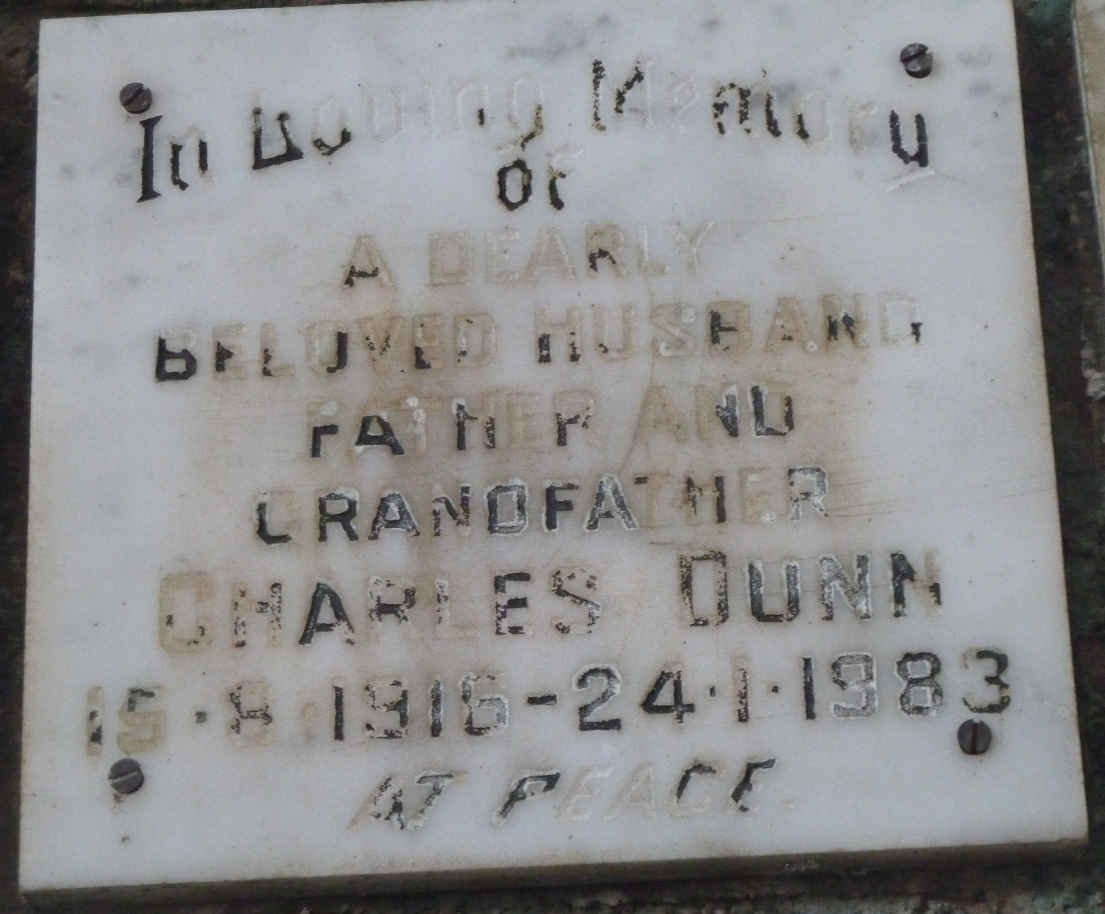 In Loving Memory
of
A DEARLY
BELOVED HUSBAND
FATHER AND
GRANDFATHER
CHARLES DUNN
15·8·1916-24·1·1983
AT PEACE.